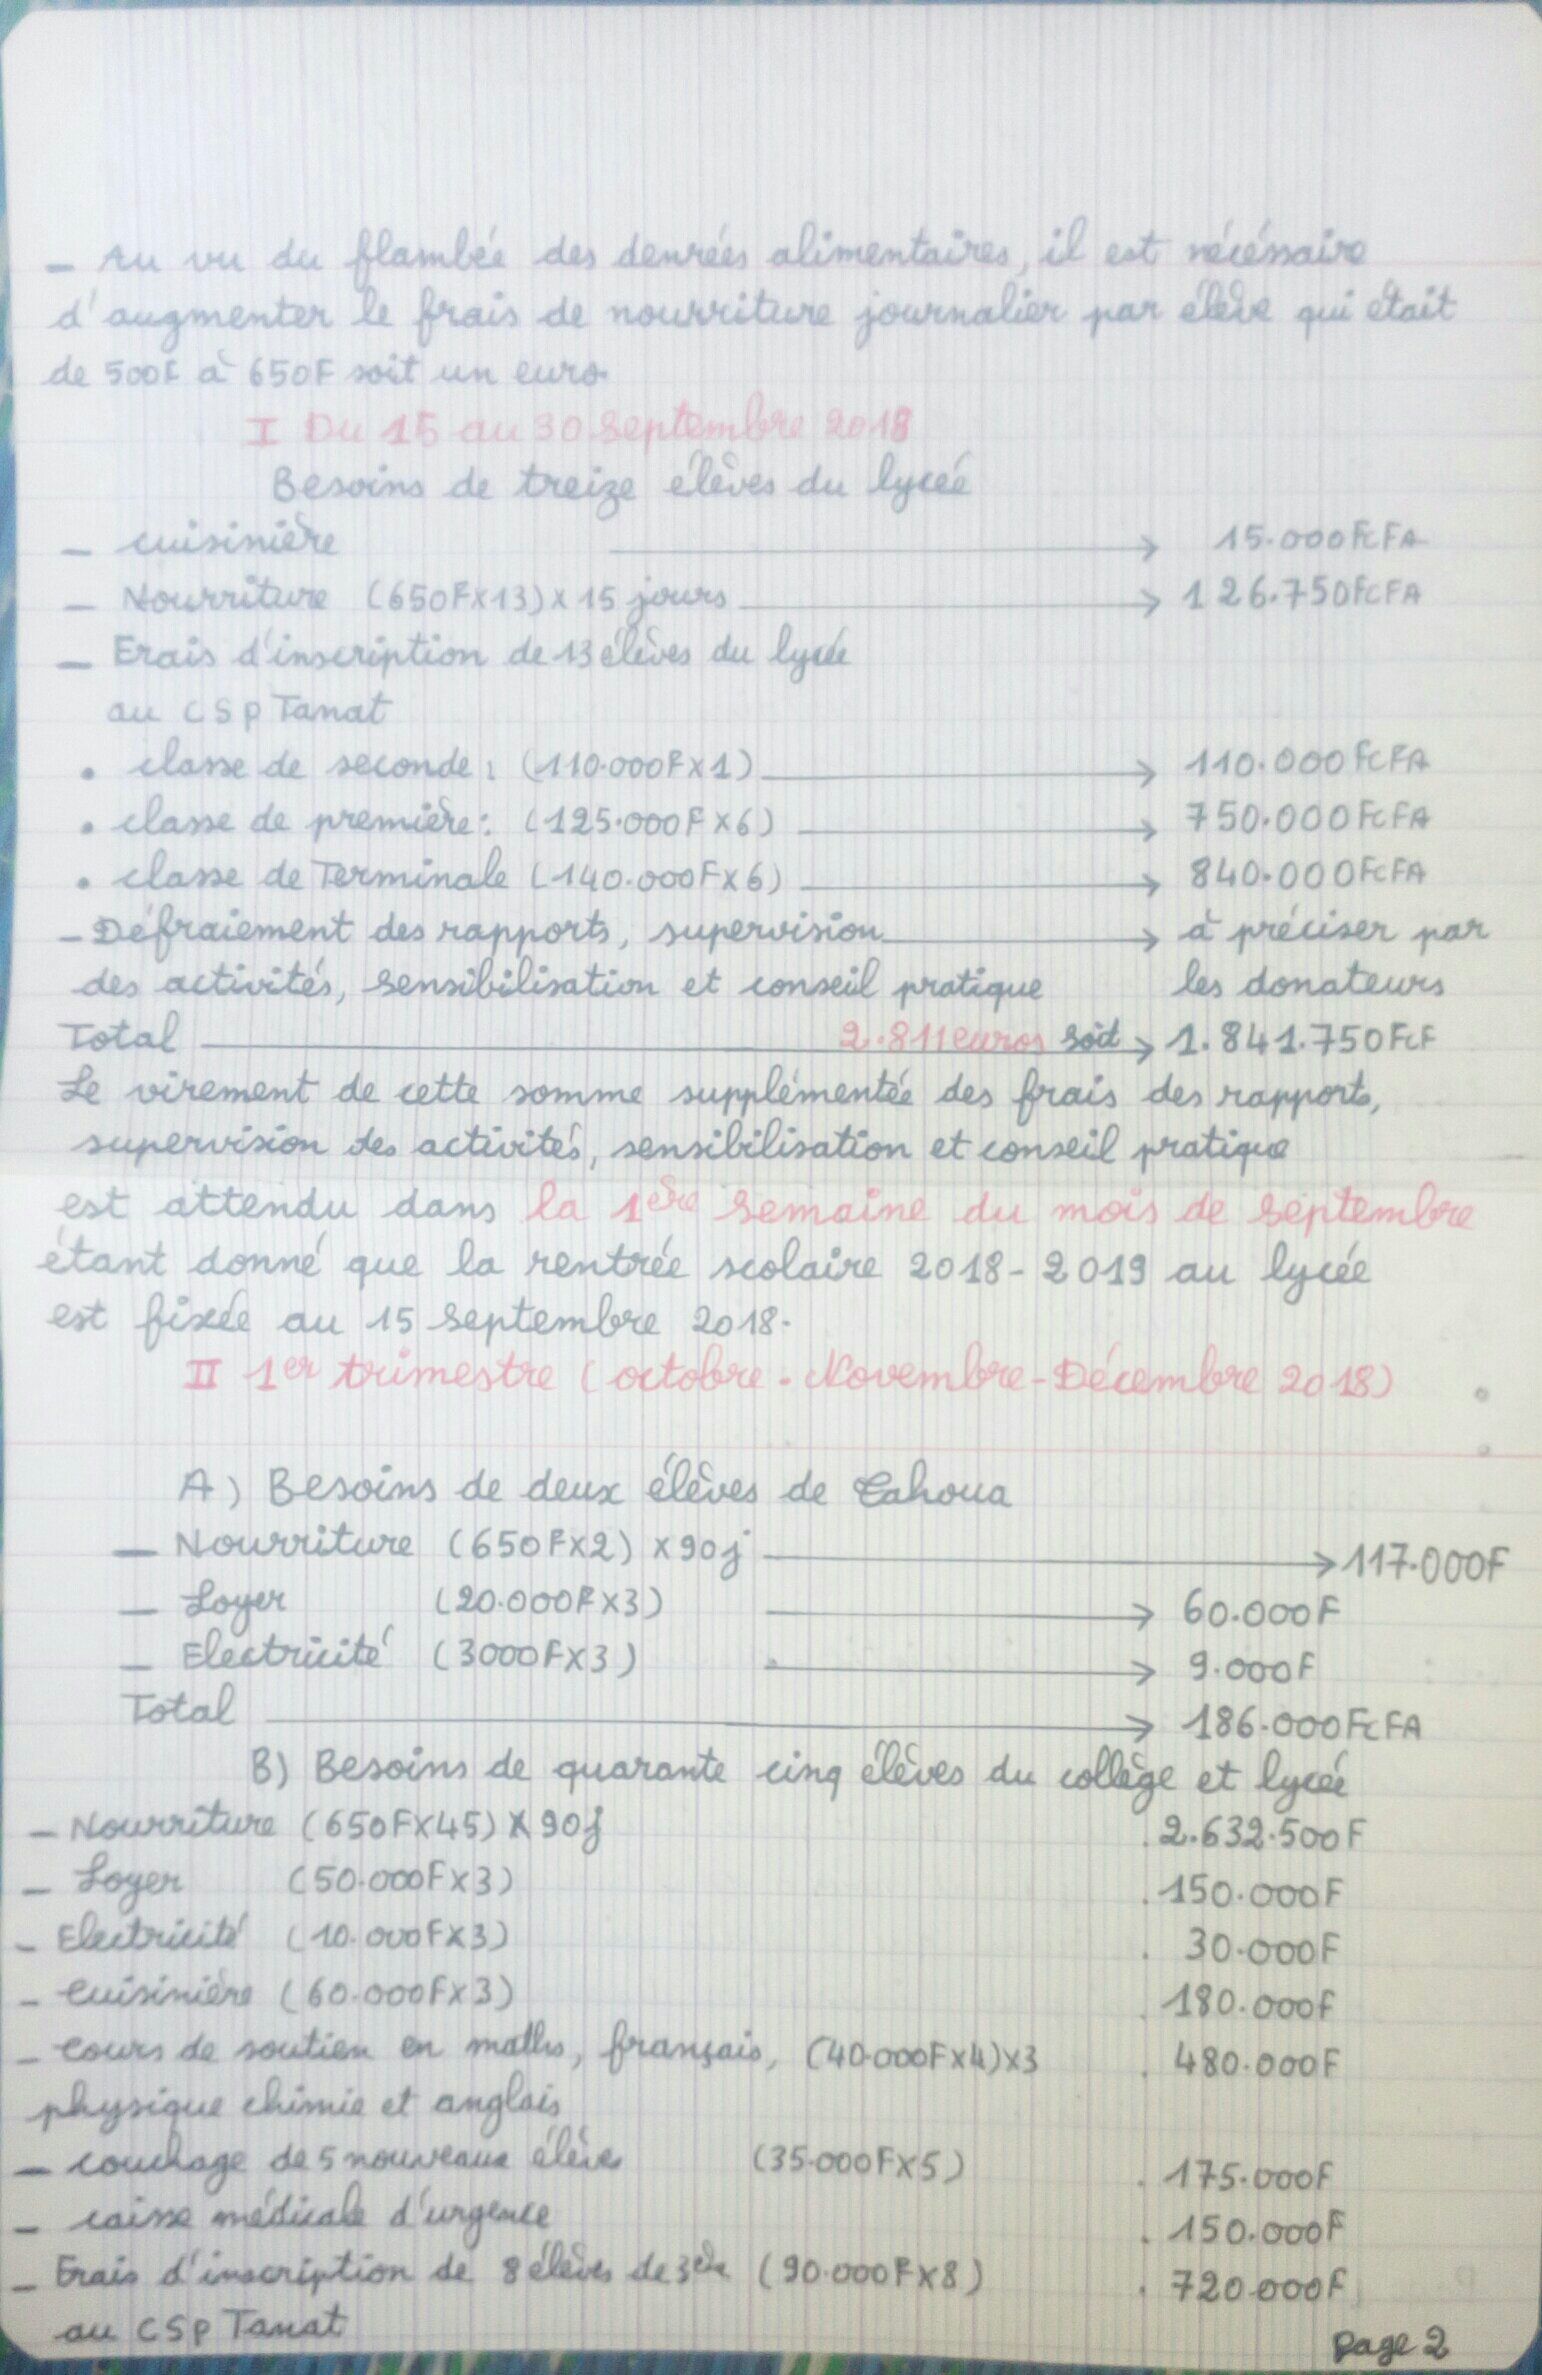 - Au vu du flambée des denrées alimentaires, il est nécéssaire
d'augmenter le frais de nourriture journalier par élève qui était
de 500F à 650F soit un euro.
I Du 15 au 30 septembre 2018
Besoins de treize élèves du lycée
- cuisinière → 15.000FcFA
- Nourriture (650F×13)×15 jours → 126.750FCFA
- Frais d'inscription de 13 élèves du lycée
au CSP Tanat
• classe de seconde : (110.000F×1) → 110.000FCFA
• classe de première : (125.000F×6) → 750.000FCFA
• classe de Terminale (140.000F×6) → 840.000FCFA
- Défraiement des rapports, supervision → à préciser par
des activités, sensibilisation et conseil pratique les donateurs
Total 2.811 euros soit → 1.841.750FCF
Le virement de cette somme supplémentée des frais des rapports,
supervision des activités, sensibilisation et conseil pratique
est attendu dans la 1ère semaine du mois de septembre
étant donné que la rentrée scolaire 2018-2019 au lycée
est fixée au 15 septembre 2018.
II 1er trimestre (octobre - Novembre - Décembre 2018)
A) Besoins de deux élèves de Tahoua
- Nourriture (650F×2) ×90j → 117.000F
- Loyer (20.000F×3) → 60.000F
- Electricité (3000F×3) → 9.000F
Total → 186.000FCFA
B) Besoins de quarante cinq élèves du collège et lycée
- Nourriture (650F×45) × 90j 2.632.500F
- Loyer (50.000F×3) 150.000F
- Electricité (10.000F×3) 30.000F
- Cuisinière (60.000F×3) 180.000F
- Cours de soutien en maths, français, (40.000F×4)×3 480.000F
physique chimie et anglais
- couchage de 5 nouveaux élèves (35.000F×5) 175.000F
- caisse médicale d'urgence 150.000F
- Frais d'inscription de 8 élèves de 3ème (90.000F×8) 720.000F
au CSP Tanat
Page 2